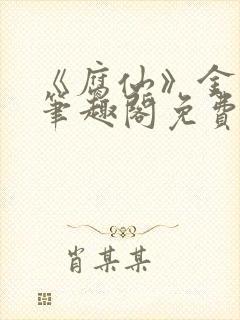 《腐仙》全
笔趣阁免费
肖某某